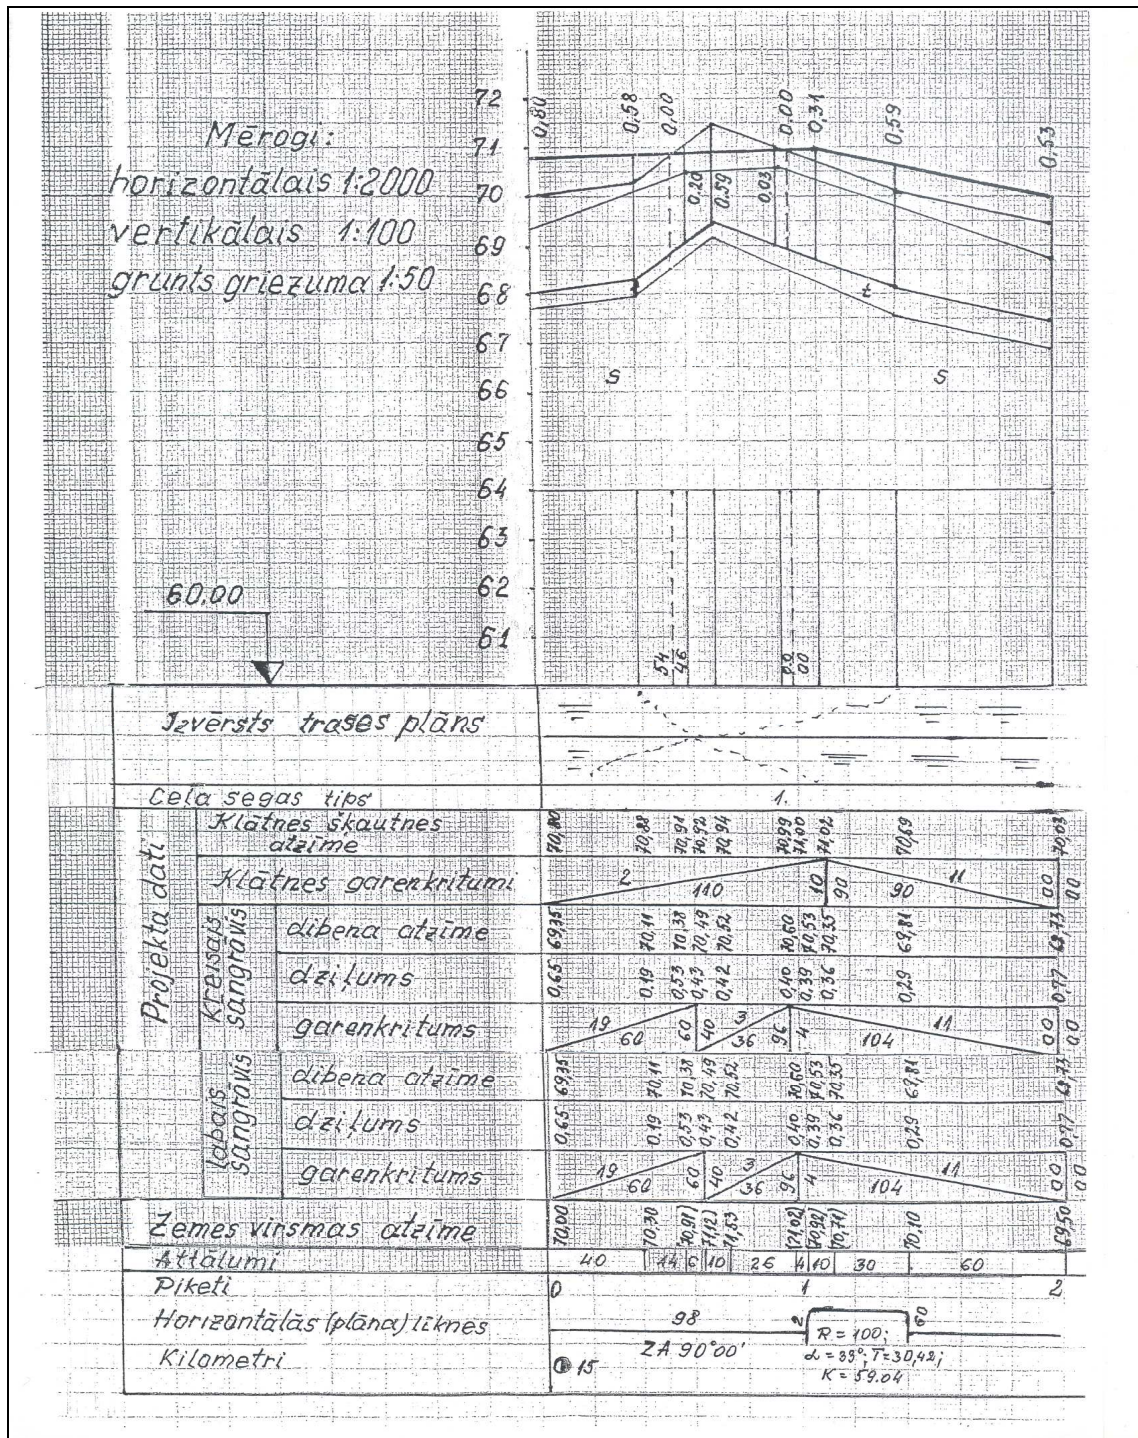 Mērogi:
horizontālais 1:2000
vertikālais 1:100
grunts griezuma 1:50
72
71
70
69
68
67
66
65
64
63
62
61
60.00
0,80 0,58 0,00 0,00 0,31 0,59 0,53
0,20 0,59 0,03
t
S S
54 46 00 00
Izvērsts trases plāns
Ceļa segas tips 1.
Projekta dati
Klātnes šķautnes atzīme 70,80 70,88 70,91 70,92 70,94 70,99 71,00 71,02 70,69 70,03
Klātnes garenkritumi 2 110 10 90 11 90 00 00
Kreisais sāngrāvis
dibena atzīme 69,35 70,11 70,38 70,49 70,52 70,60 70,53 70,35 69,81 68,73
dziļums 0,65 0,19 0,53 0,43 0,42 0,40 0,39 0,36 0,29 0,77
garenkritums 19 60 60 40 3 36 96 4 11 104 00 00
Labais sāngrāvis
dibena atzīme 69,35 70,11 70,38 70,49 70,52 70,60 70,53 70,35 69,81 68,73
dziļums 0,65 0,19 0,53 0,43 0,42 0,40 0,39 0,36 0,29 0,77
garenkritums 19 60 60 40 3 36 96 4 11 104 00 00
Zemes virsmas atzīme 70,00 70,30 (70,91) (71,12) 71,53 (71,02) (70,92) (70,71) 70,10 69,50
Attālumi 40 14 6 10 26 4 10 30 60
Piketi 0 1 2
Horizontālās (plāna) līknes 98 2 60
R = 100;
ZA 90°00' α = 39°; T=30,42;
K = 59.04
Kilometri 15